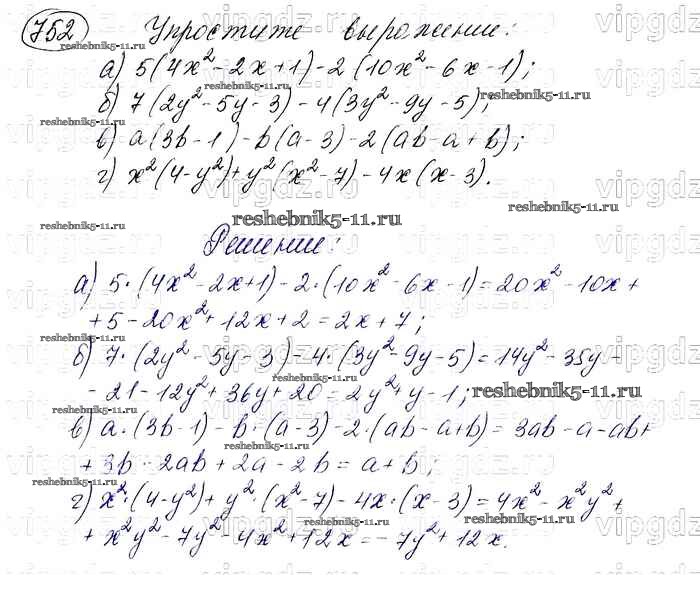 752 Упростите выражение:
а) 5(4x²-2x+1)-2(10x²-6x-1);
б) 7(2y²-5y-3)-4(3y²-9y-5);
в) a(3b-1)-b(a-3)-2(ab-a+b);
г) x²(4-y²)+y²(x²-7)-4x(x-3).
Решение:
а) 5·(4x²-2x+1)-2·(10x²-6x-1)=20x²-10x+
+5-20x²+12x+2=2x+7;
б) 7·(2y²-5y-3)-4·(3y²-9y-5)=14y²-35y-
-21-12y²+36y+20=2y²+y-1;
в) a·(3b-1)-b·(a-3)-2·(ab-a+b)=3ab-a-ab+
+3b-2ab+2a-2b=a+b;
г) x²·(4-y²)+y²·(x²-7)-4x·(x-3)=4x²-x²y²+
+x²y²-7y²-4x²+12x=-7y²+12x.
reshebnik5-11.ru
vipgdz.ru